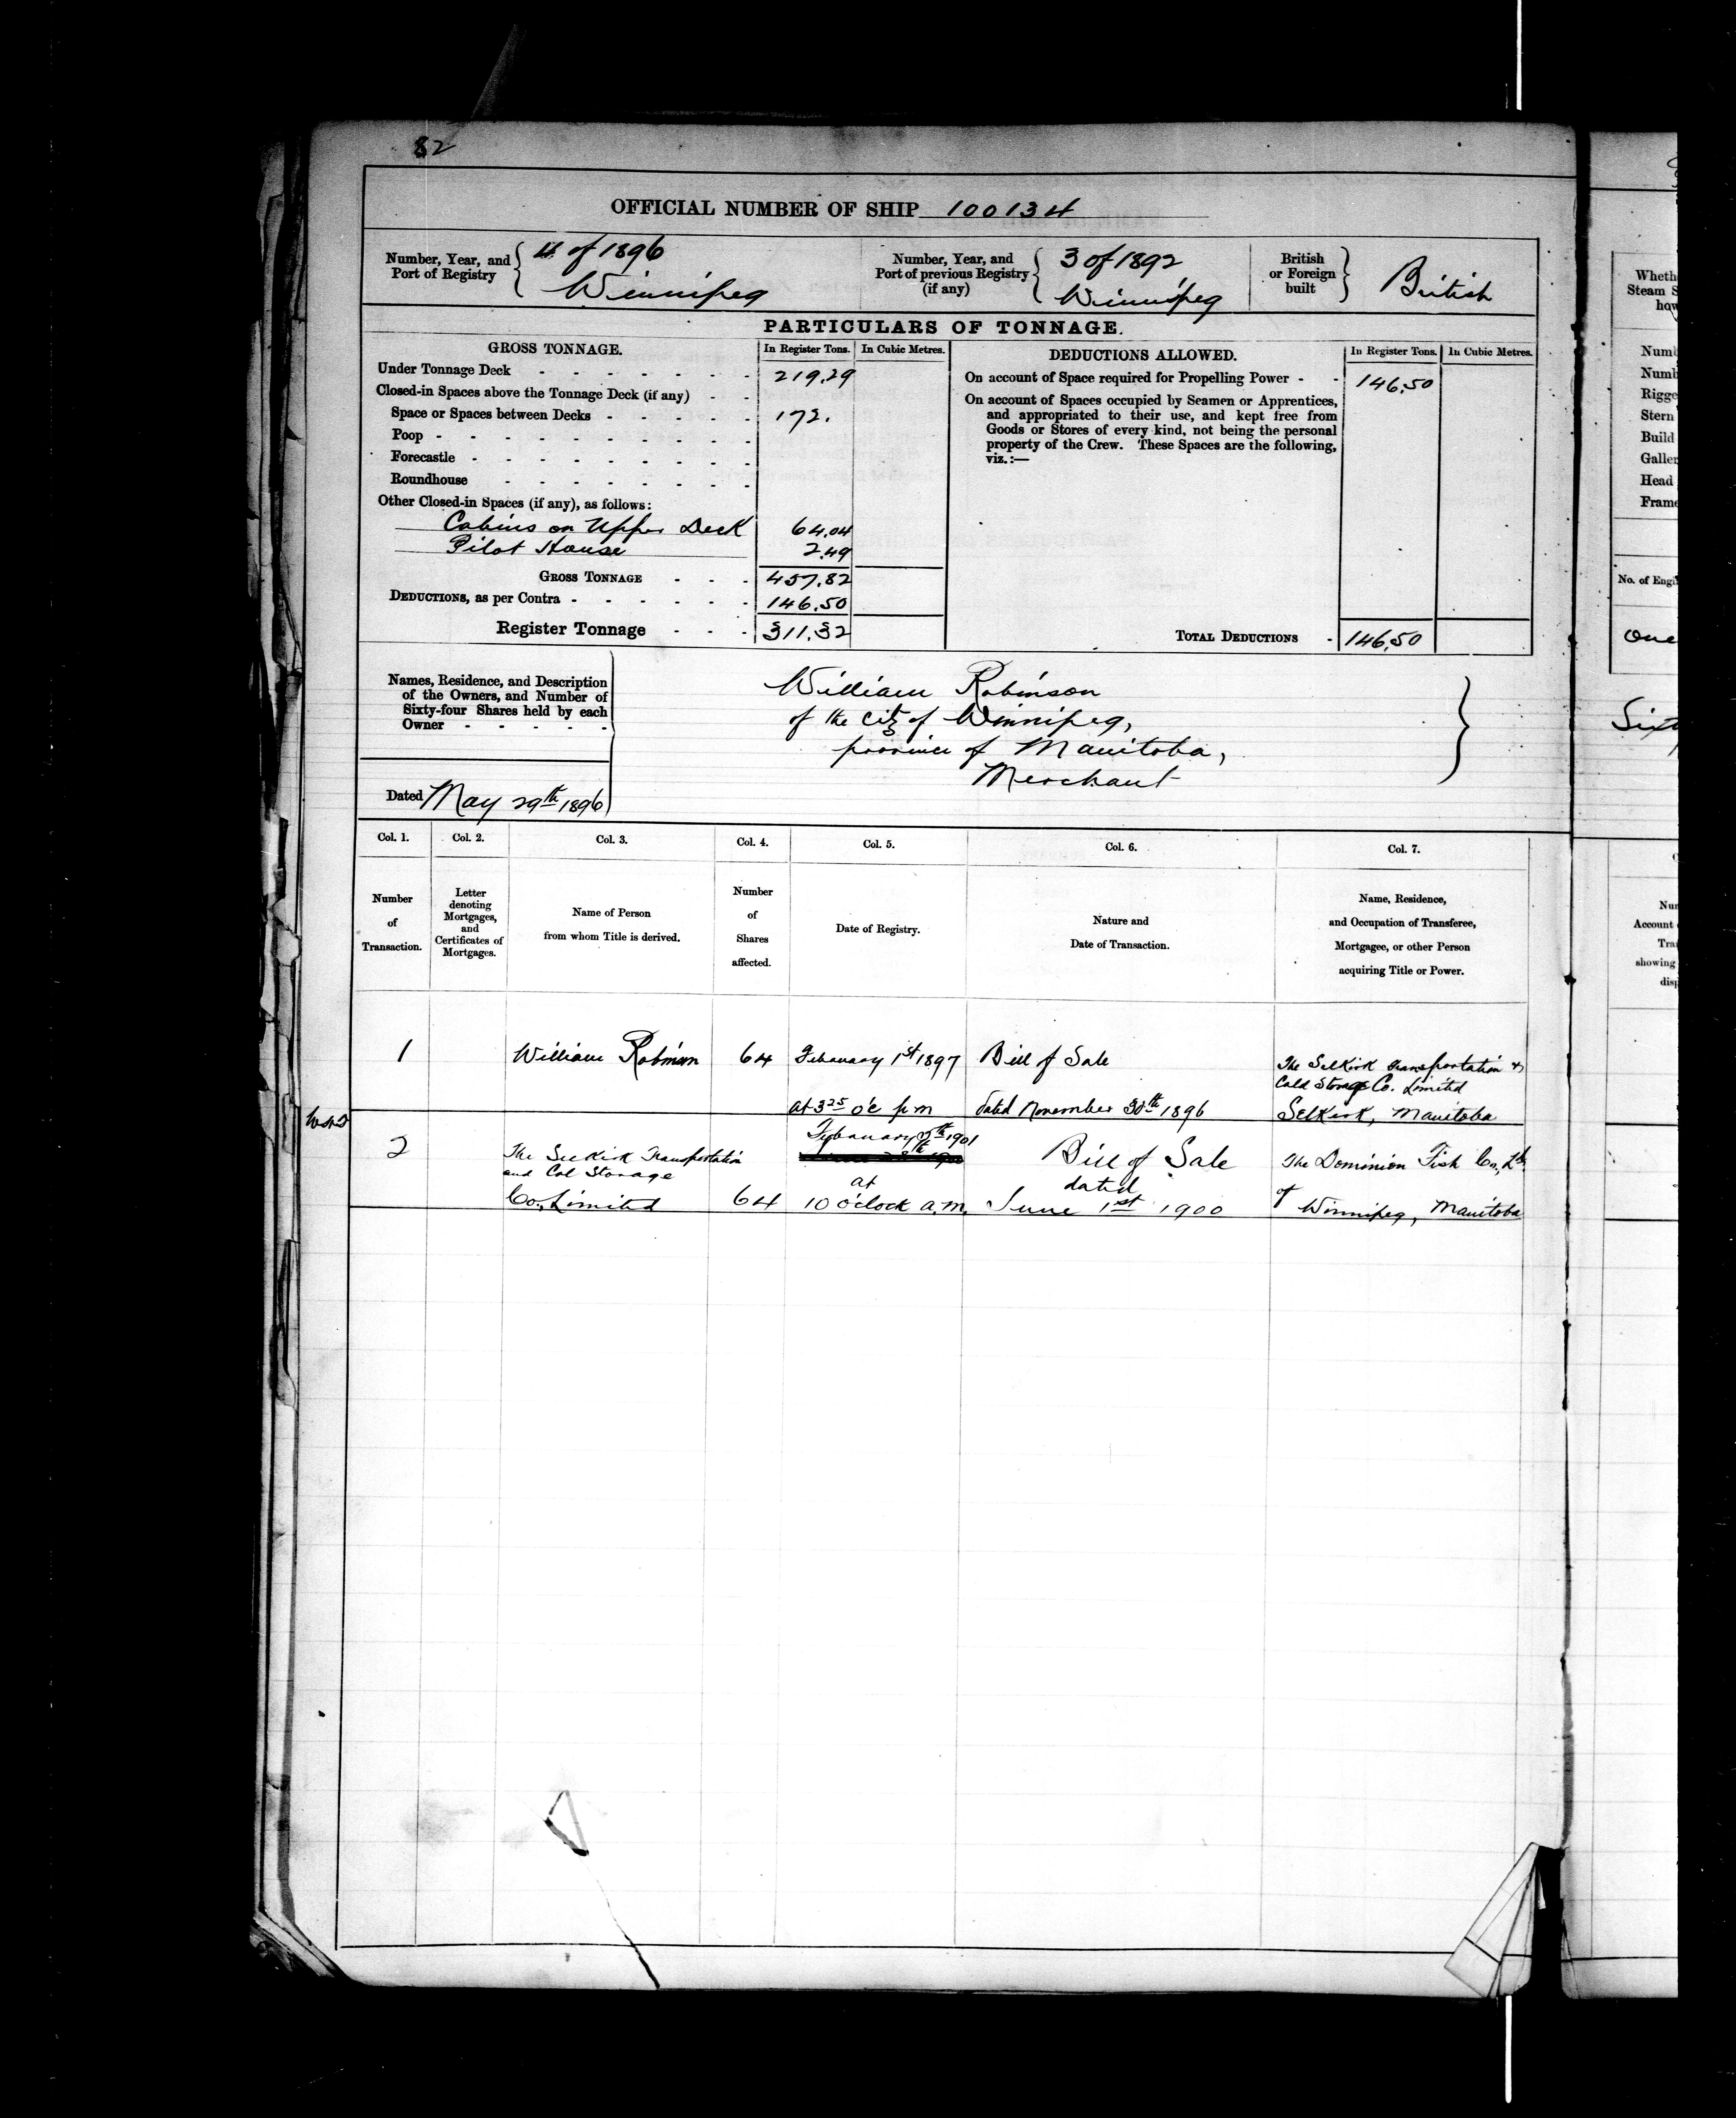 82
OFFICIAL NUMBER OF SHIP 100134
Number, Year, and Port of Registry { 4 of 1896 Winnipeg
Number, Year, and Port of previous Registry (if any) { 3 of 1892 Winnipeg
British or Foreign built } British
PARTICULARS OF TONNAGE.
GROSS TONNAGE. In Register Tons. In Cubic Metres.
Under Tonnage Deck - - - - - - - 219.29
Closed-in Spaces above the Tonnage Deck (if any) - -
Space or Spaces between Decks - - - - - 172.
Poop - - - - - - - - - -
Forecastle - - - - - - - -
Roundhouse - - - - - - -
Other Closed-in Spaces (if any), as follows:
Cabins on Upper Deck 64.04
Pilot House 2.49
GROSS TONNAGE - - - 457.82
DEDUCTIONS, as per Contra - - - - - - 146.50
Register Tonnage - - - 311.32
DEDUCTIONS ALLOWED. In Register Tons. In Cubic Metres.
On account of Space required for Propelling Power - - 146.50
On account of Spaces occupied by Seamen or Apprentices,
and appropriated to their use, and kept free from
Goods or Stores of every kind, not being the personal
property of the Crew. These Spaces are the following,
viz.:—
TOTAL DEDUCTIONS - 146.50
Names, Residence, and Description
of the Owners, and Number of
Sixty-four Shares held by each
Owner - - - - -
Dated May 29th 1896
William Robinson
of the city of Winnipeg,
province of Manitoba,
Merchant
Col. 1. Col. 2. Col. 3. Col. 4. Col. 5. Col. 6. Col. 7.
Number of Transaction.
Letter denoting Mortgages, and Certificates of Mortgages.
Name of Person from whom Title is derived.
Number of Shares affected.
Date of Registry.
Nature and Date of Transaction.
Name, Residence, and Occupation of Transferee, Mortgagee, or other Person acquiring Title or Power.
1
William Robinson
64
February 1st 1897
at 3 25 o'c p m
Bill of Sale
dated November 30th 1896
The Selkirk Transportation &
Cold Storage Co. Limited
Selkirk, Manitoba
2
The Selkirk Transportation
and Col Storage
Co., Limited
64
February 5th 1901
at
10 o'clock a.m.
Bill of Sale
dated
June 1st 1900
The Dominion Fish Co., Ld.
of
Winnipeg, Manitoba
Wheth
Steam S
how
Numb
Numb
Rigge
Stern
Build
Galler
Head
Frame
No. of Engi
One
Sixt
Nun
Account
Tra
showing
disp